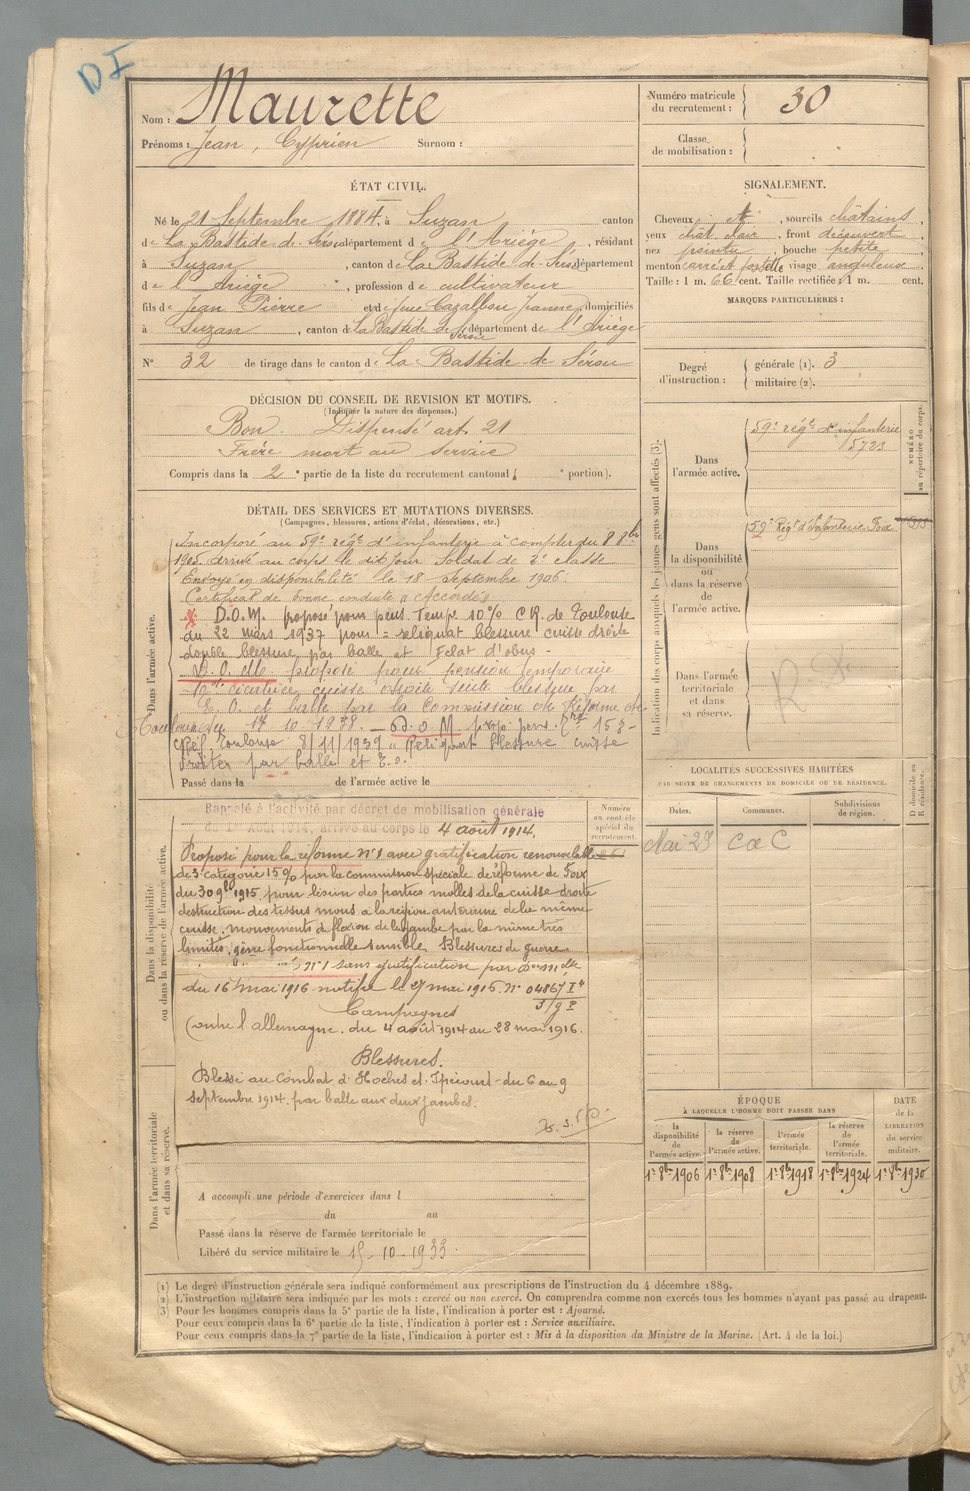 D I
Nom : Maurette
Prénoms : Jean, Cyprien Surnom :
Numéro matricule
du recrutement : 30
Classe
de mobilisation :
ÉTAT CIVIL.
Né le 21 Septembre 1884, à Suzan canton
de La Bastide-de-Sérou département de l'Ariège, résidant
à Suzan, canton de La Bastide-de-Sérou département
de l'Ariège, profession de cultivateur
fils de Jean Pierre et de feue Cazalbou Jeanne, domiciliés
à Suzan, canton de La Bastide de Sérou département de l'Ariège
N° 32 de tirage dans le canton de La Bastide-de-Sérou
SIGNALEMENT.
Cheveux et, sourcils châtains
yeux chât clair, front découvert
nez pointu, bouche petite
menton carré et fossette visage anguleuse.
Taille : 1 m. 66 cent. Taille rectifiée : 1 m. cent.
MARQUES PARTICULIÈRES :
Degré
d'instruction :
générale (1). 3
militaire (2).
DÉCISION DU CONSEIL DE REVISION ET MOTIFS.
(Indiquer la nature des dispenses.)
Bon. Dispensé art. 21
Frère mort au service
Compris dans la 2e partie de la liste du recrutement cantonal ( e portion).
DÉTAIL DES SERVICES ET MUTATIONS DIVERSES.
(Campagnes, blessures, actions d'éclat, décorations, etc.)
Dans l'armée active.
Incorporé au 59e régt d'infanterie à compter du 8 8bre
1905. arrivé au corps le dit jour Soldat de 2e classe
Envoyé en disponibilité le 18 Septembre 1906.
Certificat de bonne conduite "Accordé"
D.O.M. proposé pour pens. Temp. 10% C.R. de Toulouse
du 22 mars 1937 pour : = reliquat blessure cuisse droite
double blessure par balle et Eclat d'obus -
D.O.M. proposé pour pension temporaire
10% cicatrice cuisse droite suite blessure par
E. O. et balle par la Commission de Réforme de
Toulouse du 17 10-1938. - D.O.M prop. pens.
Toulouse 8/11/1939 " Reliquat blessure cuisse
droites par balle et E.O.
Passé dans la de l'armée active le
Indication des corps auxquels les jeunes gens sont affectés (3).
NUMÉRO
au répertoire du corps.
Dans
l'armée active.
59e régt d'infanterie
5723
Dans
la disponibilité
ou
dans la réserve
de
l'armée active.
59e Régt d'Infanterie Foix
Dans l'armée
territoriale
et dans
sa réserve.
Dans la disponibilité
ou dans la réserve de l'armée active.
Numéro
au contrôle
spécial du
recrutement.
Rappelé à l'activité par décret de mobilisation générale
du 1er Août 1914, arrivé au corps le 4 août 1914.
Proposé pour la réforme n°1 avec gratification renouvelable
de 3e catégorie 15% par la commission spéciale de réforme de Foix
du 30 9bre 1915 pour lésion des parties molles de la cuisse droite
destruction des tissus mous à la région antérieure de la même
cuisse, mouvements de flexion de la jambe par là même très
limités, gène fonctionnelle sensible. Blessures de guerre
n°1 sans gratification par
du 16 mai 1916 notifié le 27 mai 1916. n° 04867
Campagnes
Contre l'allemagne. du 4 août 1914 au 28 mai 1916.
Blessures.
Blessé au Combat d'Hoches et Ipécourt du 6 au 9
septembre 1914. par balle aux deux jambes.
LOCALITÉS SUCCESSIVES HABITÉES
PAR SUITE DE CHANGEMENTS DE DOMICILE OU DE RÉSIDENCE.
D domicile ou
R résidence.
Dates. Communes. Subdivisions
de région.
Mai 29
ÉPOQUE
À LAQUELLE L'HOMME DOIT PASSER DANS
DATE
de la
LIBÉRATION
du service
militaire.
la
disponibilité
de
l'armée active.
la réserve
de
l'armée active.
l'armée
territoriale.
la réserve
de
l'armée
territoriale.
1er 8bre 1906 1er 8bre 1908 1er 8bre 1918 1er 8bre 1924 1er 8bre 1930
Dans l'armée territoriale
et dans sa réserve.
A accompli une période d'exercices dans l
du au
Passé dans la réserve de l'armée territoriale le
Libéré du service militaire le 15-10-1933.
(1) Le degré d'instruction générale sera indiqué conformément aux prescriptions de l'instruction du 4 décembre 1889.
(2) L'instruction militaire sera indiquée par les mots : exercé ou non exercé. On comprendra comme non exercés tous les hommes n'ayant pas passé au drapeau.
(3) Pour les hommes compris dans la 5e partie de la liste, l'indication à porter est : Ajourné.
Pour ceux compris dans la 6e partie de la liste, l'indication à porter est : Service auxiliaire.
Pour ceux compris dans la 7e partie de la liste, l'indication à porter est : Mis à la disposition du Ministre de la Marine. (Art. 4 de la loi.)